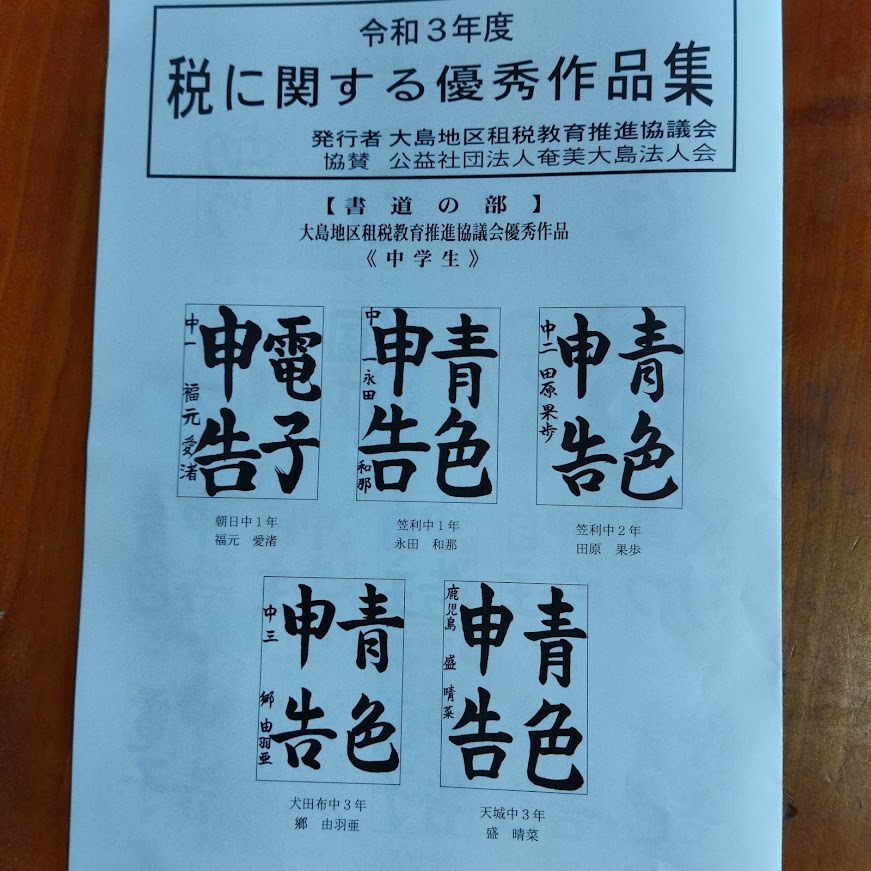 令和３年度
税に関する優秀作品集
発行者 大島地区租税教育推進協議会
協賛 公益社団法人奄美大島法人会
【書道の部】
大島地区租税教育推進協議会優秀作品
《中学生》
電子
申告
中一 福元愛渚
朝日中１年
福元 愛渚
青色
申告
中一 永田和那
笠利中１年
永田 和那
青色
申告
中二 田原果歩
笠利中２年
田原 果歩
青色
申告
中三 郷由羽亜
犬田布中３年
郷 由羽亜
青色
申告
鹿児島 盛晴菜
天城中３年
盛 晴菜